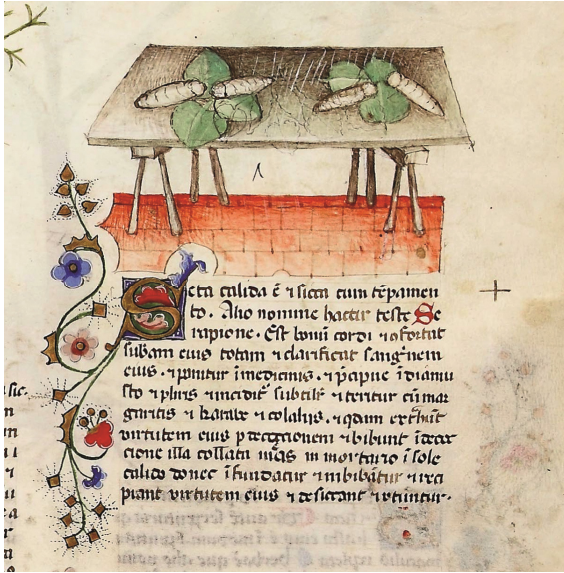 Seta calida ē ⁊ sicca cum tēpamen
to. Alio nomine haccir teste Se
rapione. Est bonū cordi ⁊ ɔfortat
subam eius totam ⁊ clarificat sang'nem
eius. ⁊ ponitur ī medicinis. ⁊ p̄cipue ī diamu
sto ⁊ pliris ⁊ incidit' subtilr ⁊ teritur cū mar
garitis ⁊ karabe ⁊ ⁊ qdam
virtutem eius p decoccionem ⁊ bibunt ī decoc
cione illa in mortario ī sole
calido donec īfundatur ⁊ imbibātur ⁊ reci
piant virtutem eius ⁊ desiccant ⁊ utuntur.